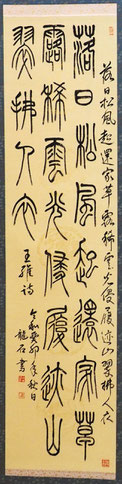 落日松風起還家草露晞雲光侵履迹山翠拂人衣
落日松風起還家草
露晞雲光侵履迹山
翠拂人衣
王維詩
令和癸卯年秋日
龍石書